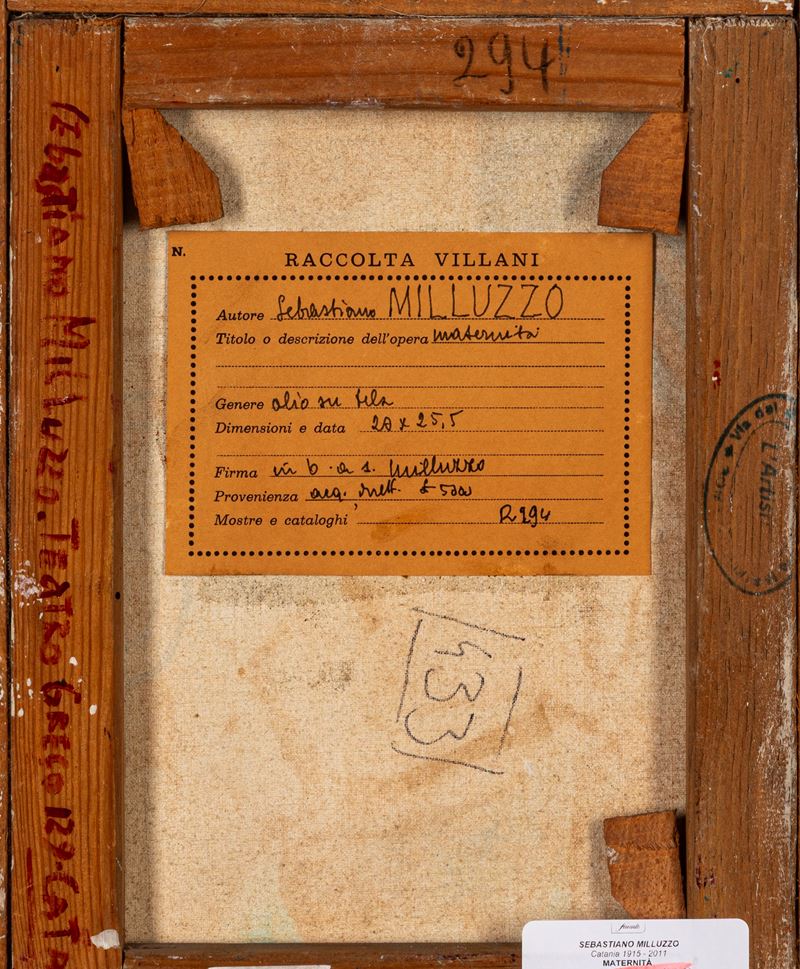 294
Sebastiano Milluzzo. TEATRO GRECO 129. CATA
N.
RACCOLTA VILLANI
Autore Sebastiano MILLUZZO
Titolo o descrizione dell'opera maternità
Genere olio su tela
Dimensioni e data 20 x 25,5
Firma in b. a s. Milluzzo
Provenienza acq.
Mostre e cataloghi R294
Via dei
L'Artist
433
SEBASTIANO MILLUZZO
Catania 1915 - 2011
MATERNITÀ